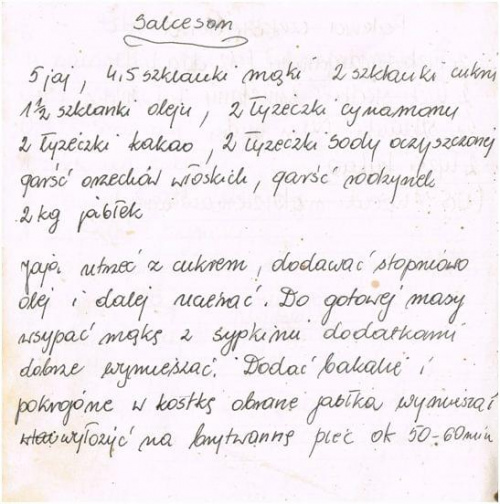 Salceson
5 jaj, 4,5 szklanki mąki 2 szklanki cukru
1 1/2 szklanki oleju, 2 łyżeczki cynamonu
2 łyżeczki kakao, 2 łyżeczki sody oczyszczonej
garść orzechów włoskich, garść rodzynek
2 kg jabłek
Jaja utrzeć z cukrem, dodawać stopniowo
olej i dalej ucierać. Do gotowej masy
wsypać mąkę z sypkimi dodatkami
dobrze wymieszać. Dodać bakalie i
pokrojone w kostkę obrane jabłka wymieszać
wyłożyć na brytwannę piec ok 50-60min